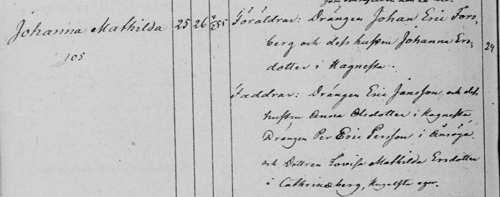 Johanna Mathilda 25 26 Föräldrar: Drängen Johan Eric Fors-
berg och dess hustru Johanna Ers-
105
dotter i Hagnesta. 24
Faddrar: Drängen Eric Jansson och dess
hustru Anna Olsdotter i Hagnesta
Drängen Per Eric Persson i
och Dottren Lovisa Mathilda Ersdotter
i Cathrineberg,